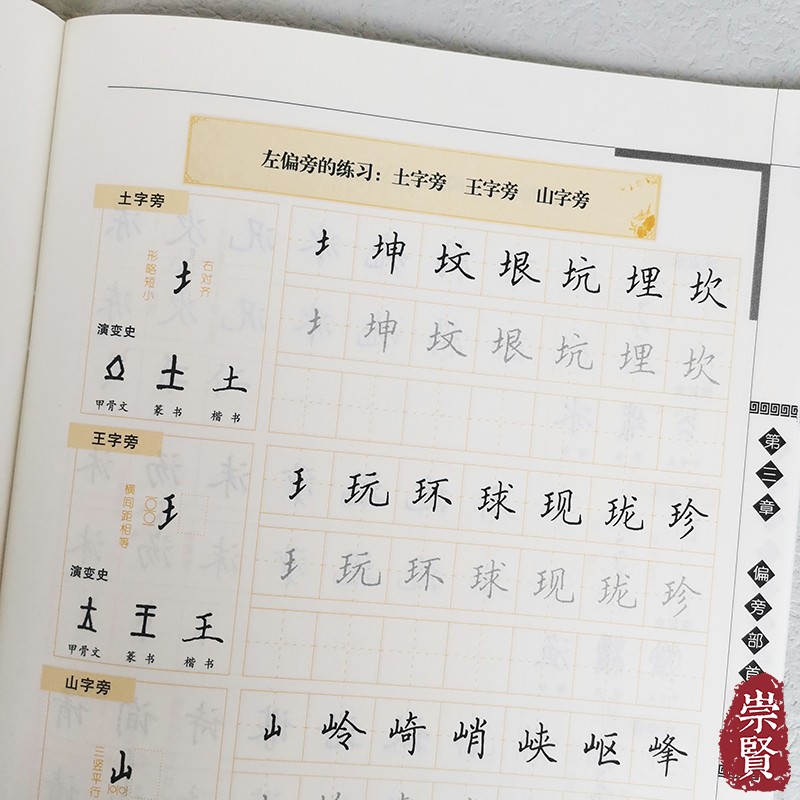 左偏旁的练习：土字旁 王字旁 山字旁
土字旁
形略短小
右对齐
演变史
甲骨文 篆书 楷书
坤 坟 垠 坑 埋 坎
坤 坟 垠 坑 埋 坎
王字旁
横间距相等
演变史
甲骨文 篆书 楷书
玩 环 球 现 珑 珍
玩 环 球 现 珑 珍
山字旁
三竖平行
山 岭 崎 峭 峡 岖 峰
第三章 偏旁部首
崇賢